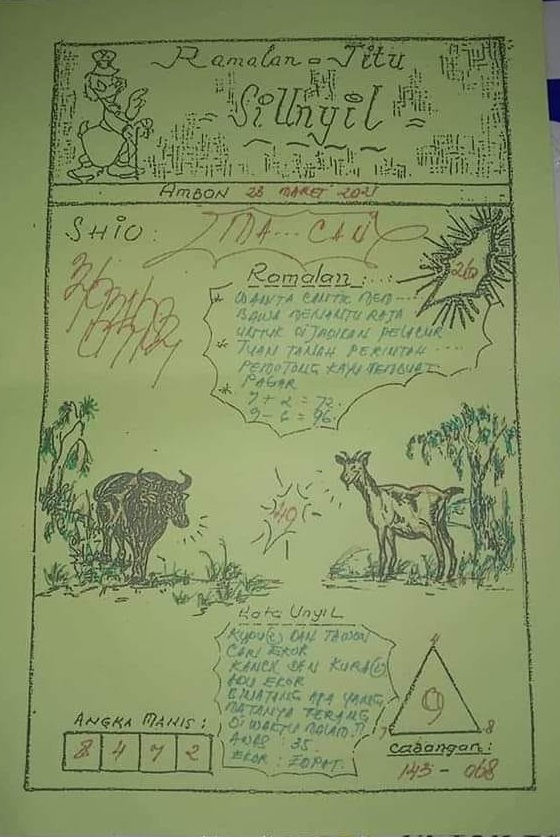 Ramalan = Jitu
- Si Unyil =
AMBON 23 MARET 2021
SHIO : MA... CAN
26
Ramalan : ...
* WANITA CANTIK MEM ....
BAWA MENANTU RAJA
UNTUK DI JADIKAN PELACUR
* TUAN TANAH PERINTAH ....
PEMOTONG KAYU MEMBUAT
PAGAR
* 7 + 2 = 72.
9 - 6 = 96.
40
Kata Unyil
KUPU(2) DAN TAWON
CARI EKOR
KANCIL DAN KURA(2)
ADU EKOR
BINATANG APA YANG
MATANYA TERANG
DI WAKTU MALAM.?
AWAS : 35.
EKOR : EMPAT.
4
9
7
8
ANGKA MANIS :
8 4 7 2
Cabangan :
143 - 068